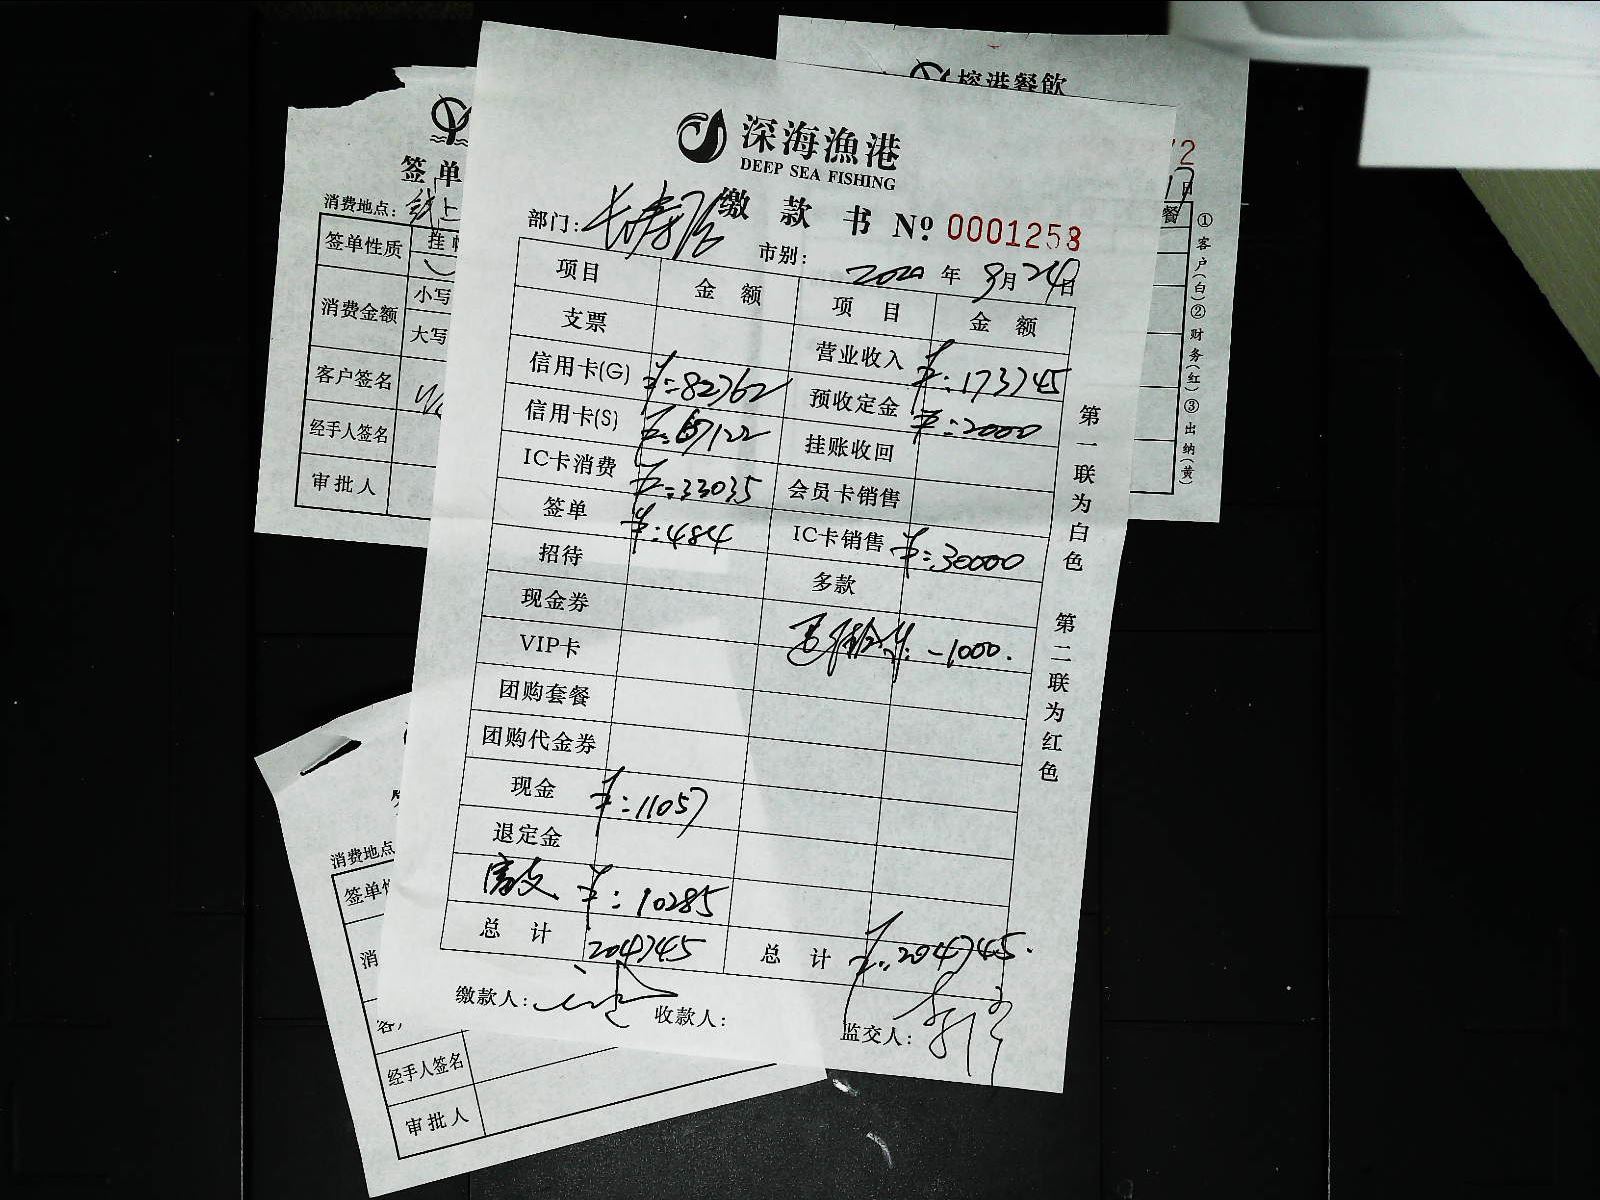 深海漁港
DEEP SEA FISHING
缴款书 № 0001258
部门: 长寿路 市别: 2020年9月24日
项目 金额 项目 金额
支票 营业收入 ¥:173745
信用卡(G) ¥:82762 预收定金 ¥:2000
信用卡(S) ¥:67122 挂账收回
IC卡消费 ¥:33035 会员卡销售
签单 ¥:484 IC卡销售 ¥:30000
招待 多款
现金券 -1000.
VIP卡
团购套餐
团购代金券
现金 ¥:11057
退定金
¥:10285
总计 204745 总计 ¥:204745.
缴款人: 收款人: 监交人:
第一联为白色 第二联为红色
签单
消费地点: 线上
签单性质 挂
消费金额 小写
大写
客户签名
经手人签名
审批人
榕港餐飲
2
日
餐
①客户(白)②财务(红)③出纳(黄)
消费地点
签单性
消
客
经手人签名
审批人